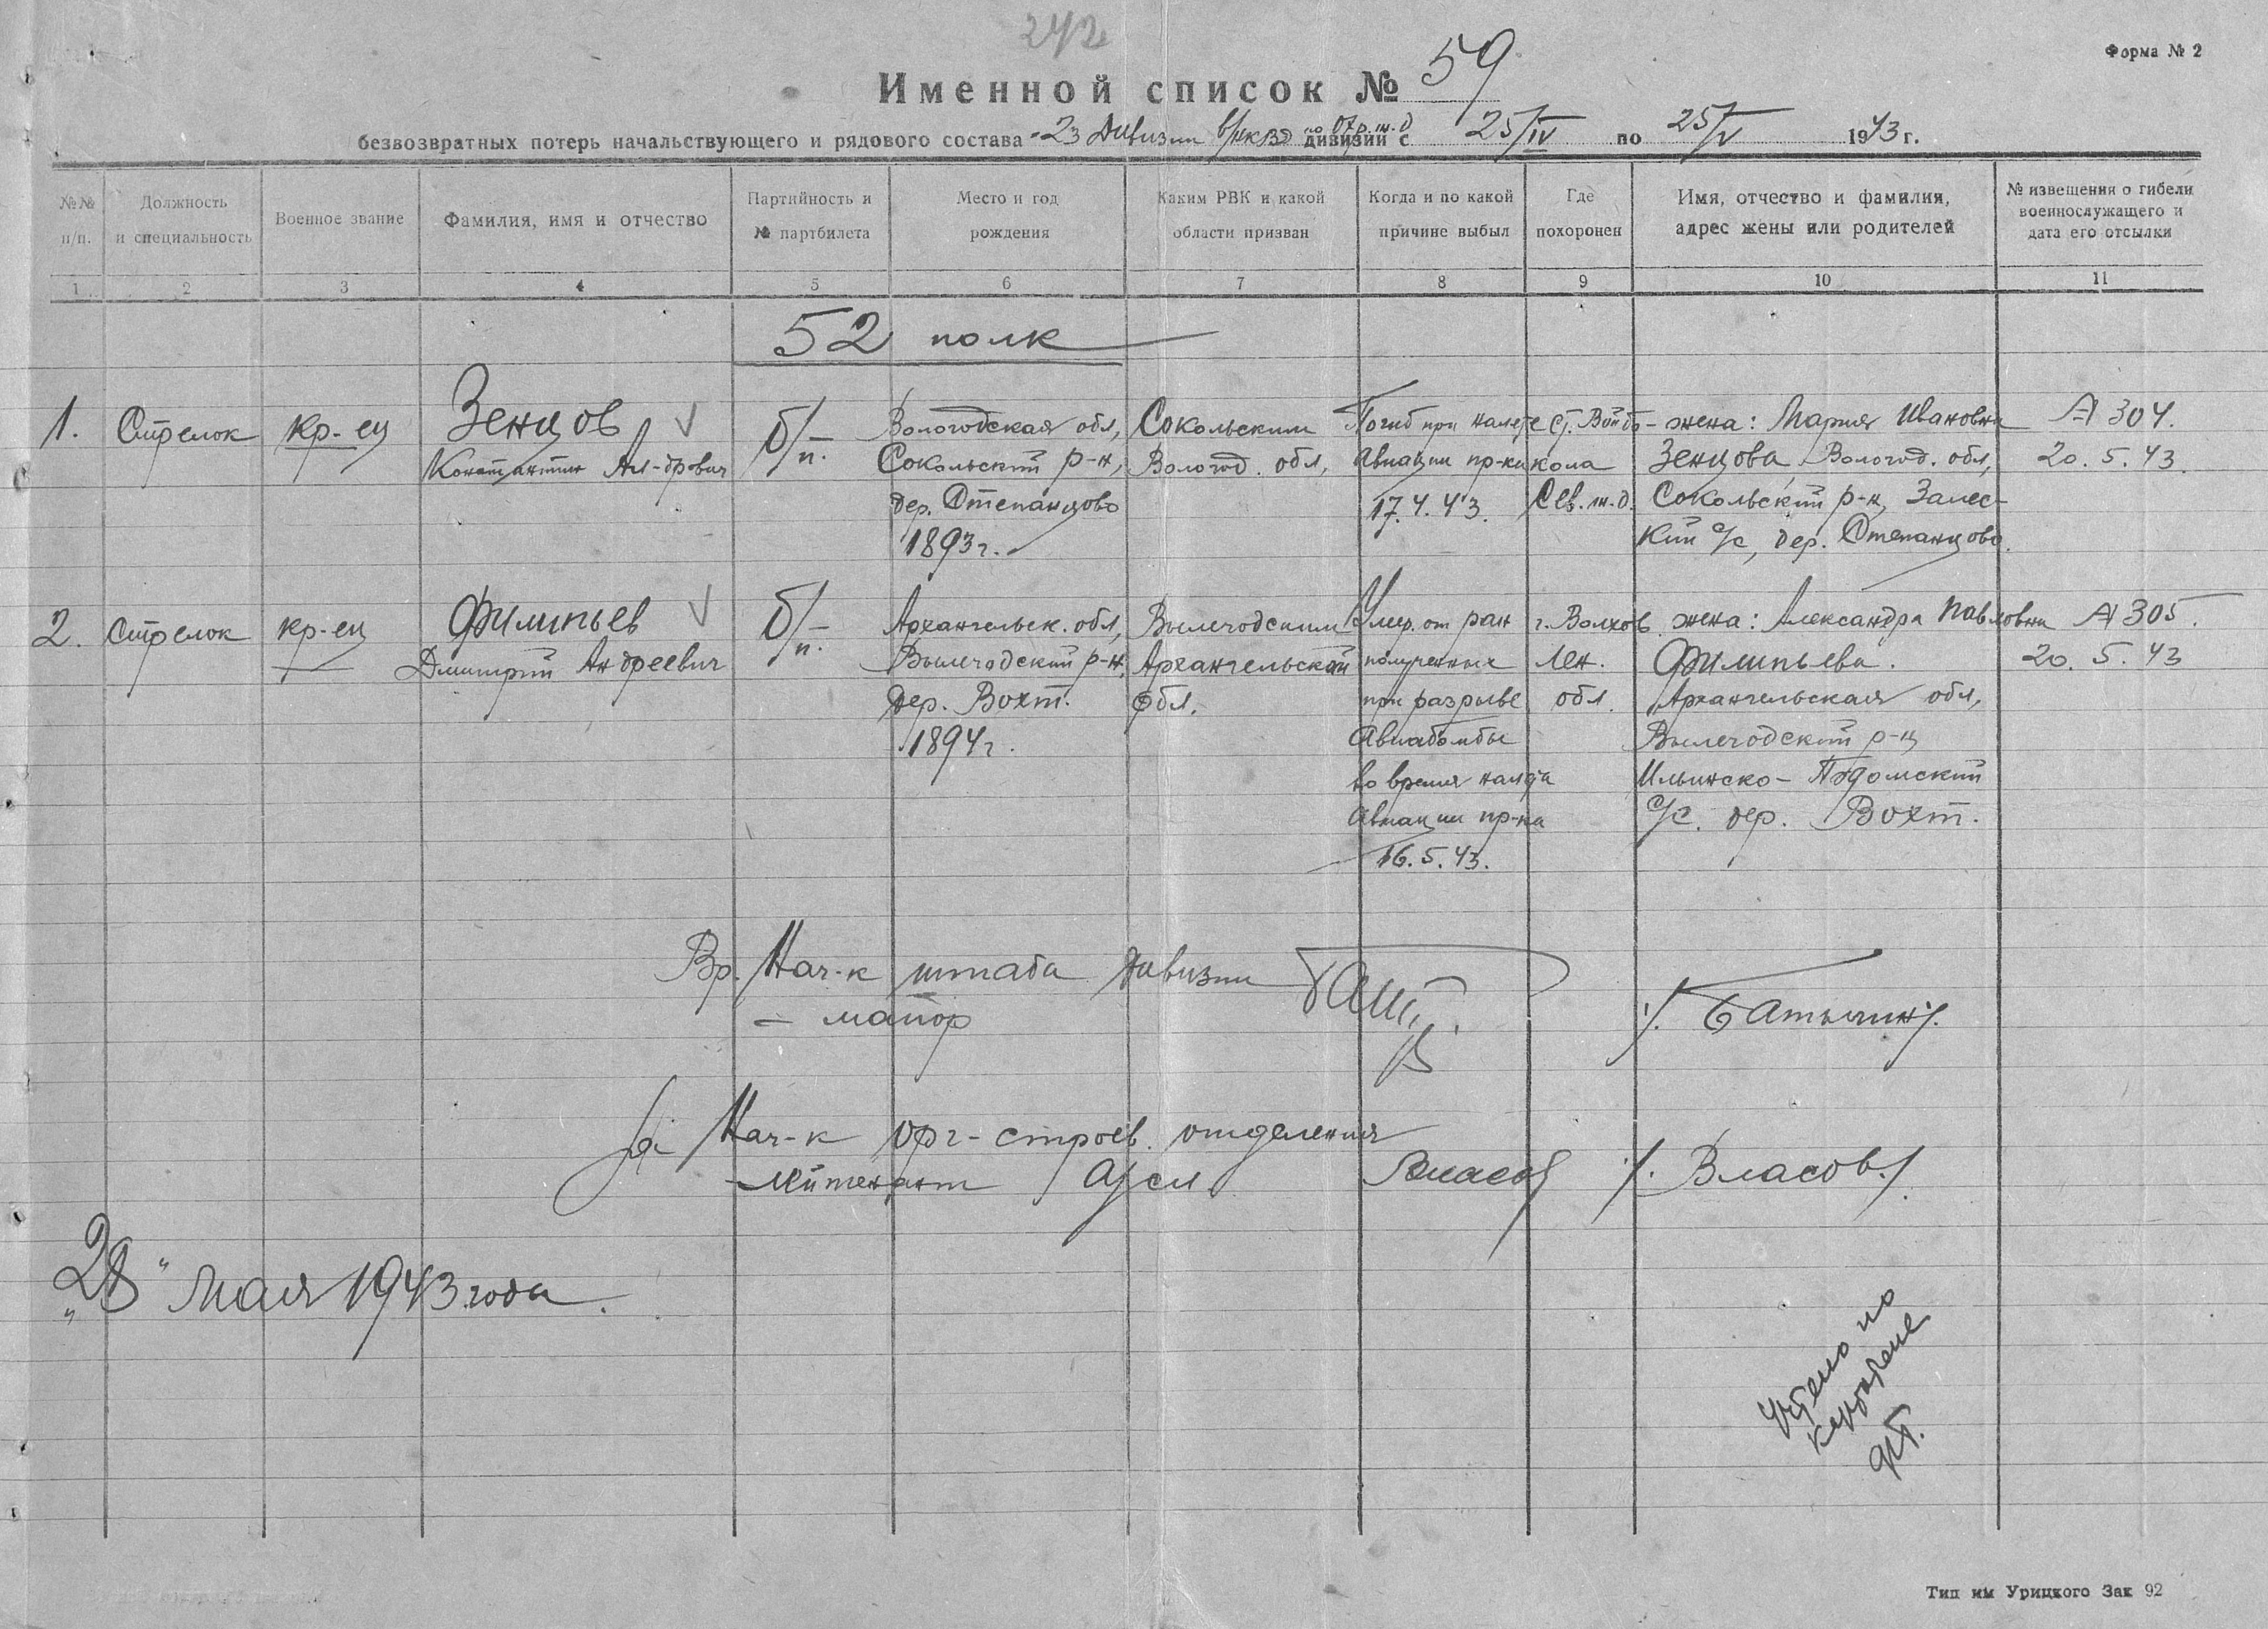 242
Форма № 2
Именной список № 59
безвозвратных потерь начальствующего и рядового состава 23 дивизии в/НКВД по Охр. ж.д. дивизии с 25/IV по 25/V 1943 г.
№№ п/п.
Должность и специальность
Военное звание
Фамилия, имя и отчество
Партийность и № партбилета
Место и год рождения
Каким РВК и какой области призван
Когда и по какой причине выбыл
Где похоронен
Имя, отчество и фамилия, адрес жены или родителей
№ извещения о гибели военнослужащего и дата его отсылки
1 2 3 4 5 6 7 8 9 10 11
52 полк
1. Стрелок кр-ец Зенцов б/п. Вологодская обл, Сокольским Погиб при налете ст. Войбо- жена: Мария Ивановна А 304.
Константин Ал-дрович Сокольский р-н, Вологод. обл, авиации пр-ка кола Зенцова, Вологод. обл, 20. 5. 43.
дер. Степанцово 17. 4. 43. Сев. ж.д. Сокольский р-н, Залес-
1893 г. кий с/с, дер. Степанцово.
2. Стрелок кр-ец Филипьев б/п. Архангельск. обл, Вилегодским Умер. от ран г. Волхов жена: Александра Павловна А 305.
Дмитрий Андреевич Вилегодский р-н, Архангельской полученных Лен. Филипьева. 20. 5. 43
дер. Вохт. обл. при разрыве обл. Архангельская обл,
1894 г. авиабомбы Вилегодский р-н
во время налета Ильинско-Подомский
авиации пр-ка с/с. дер. Вохт.
16. 5. 43.
Вр. Нач-к штаба дивизии
- майор /. Батылин/.
За Нач-к орг-строев. отделения
лейтенант а/сл Власов /. Власов./
„28" Мая 1943 года.
Учтено по
картотеке
Тип им Урицкого Зак 92